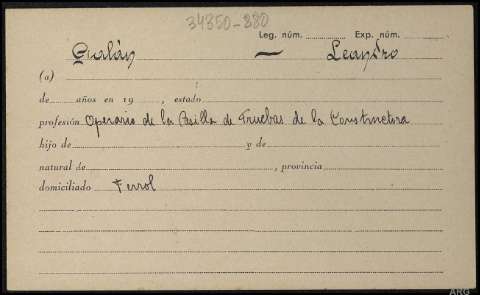 34350-880
Leg. núm. Exp. núm.
Galán — Leandro
(a)
de años en 19 , estado
profesión Operario de la Casilla de Pruebas de la Constructora
hijo de y de
natural de , provincia
domiciliado Ferrol
ARG